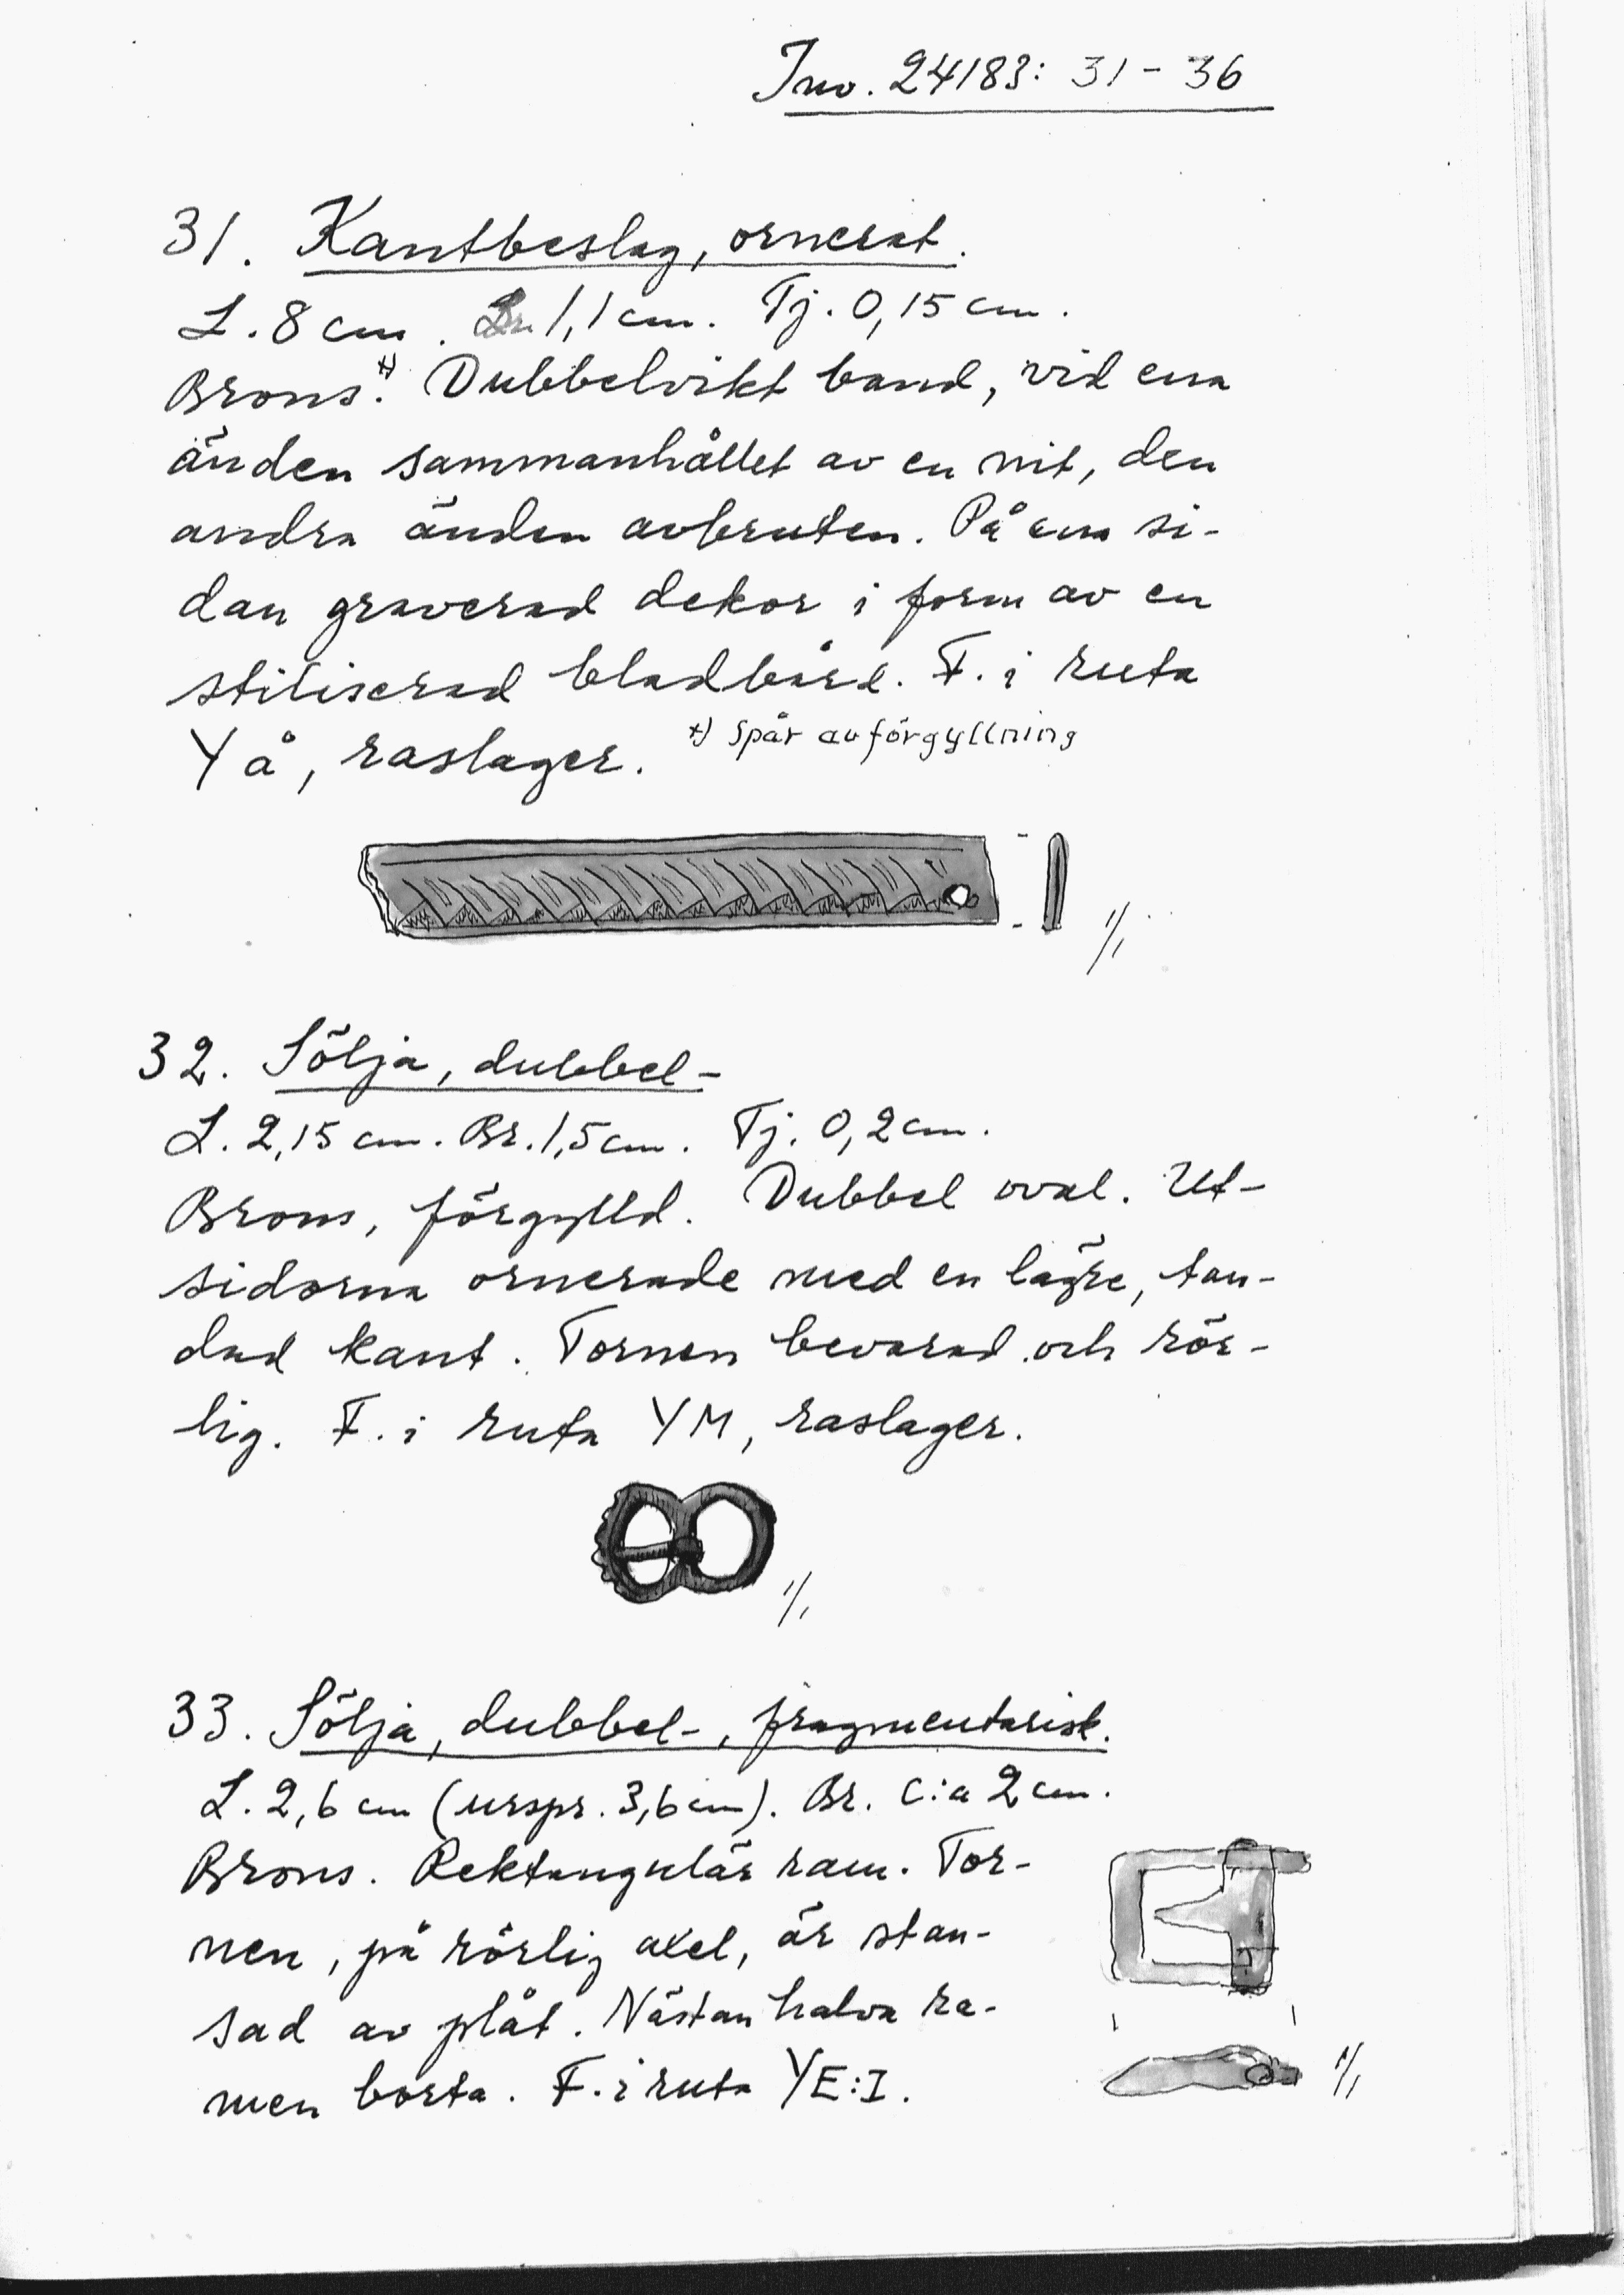 Inv. 24183: 31 - 36
31. Kantbeslag, ornerat.
L. 8 cm. Br. 1,1 cm. Tj. 0,15 cm.
Brons.*) Dubbelvikt band, vid ena
änden sammanhållet av en nit, den
andra änden avbruten. På ena si-
dan graverad dekor i form av en
stiliserad bladbård. F. i ruta
YÅ, raslager. *) Spår av förgyllning
1/1
32. Sölja, dubbel-
L. 2,15 cm. Br. 1,5 cm. Tj. 0,2 cm.
Brons, förgylld. Dubbel oval. Ut-
sidorna ornerade med en lägre, tan-
dad kant. Tornen bevarad och rör-
lig. F. i ruta YM, raslager.
1/1
33. Sölja, dubbel-, fragmentarisk.
L. 2,6 cm (urspr. 3,6 cm). Br. c:a 2 cm.
Brons. Rektangulär ram. Tor-
nen, på rörlig axel, är stan-
sad av plåt. Nästan halva ra-
men borta. F. i ruta YE:I.
1/1